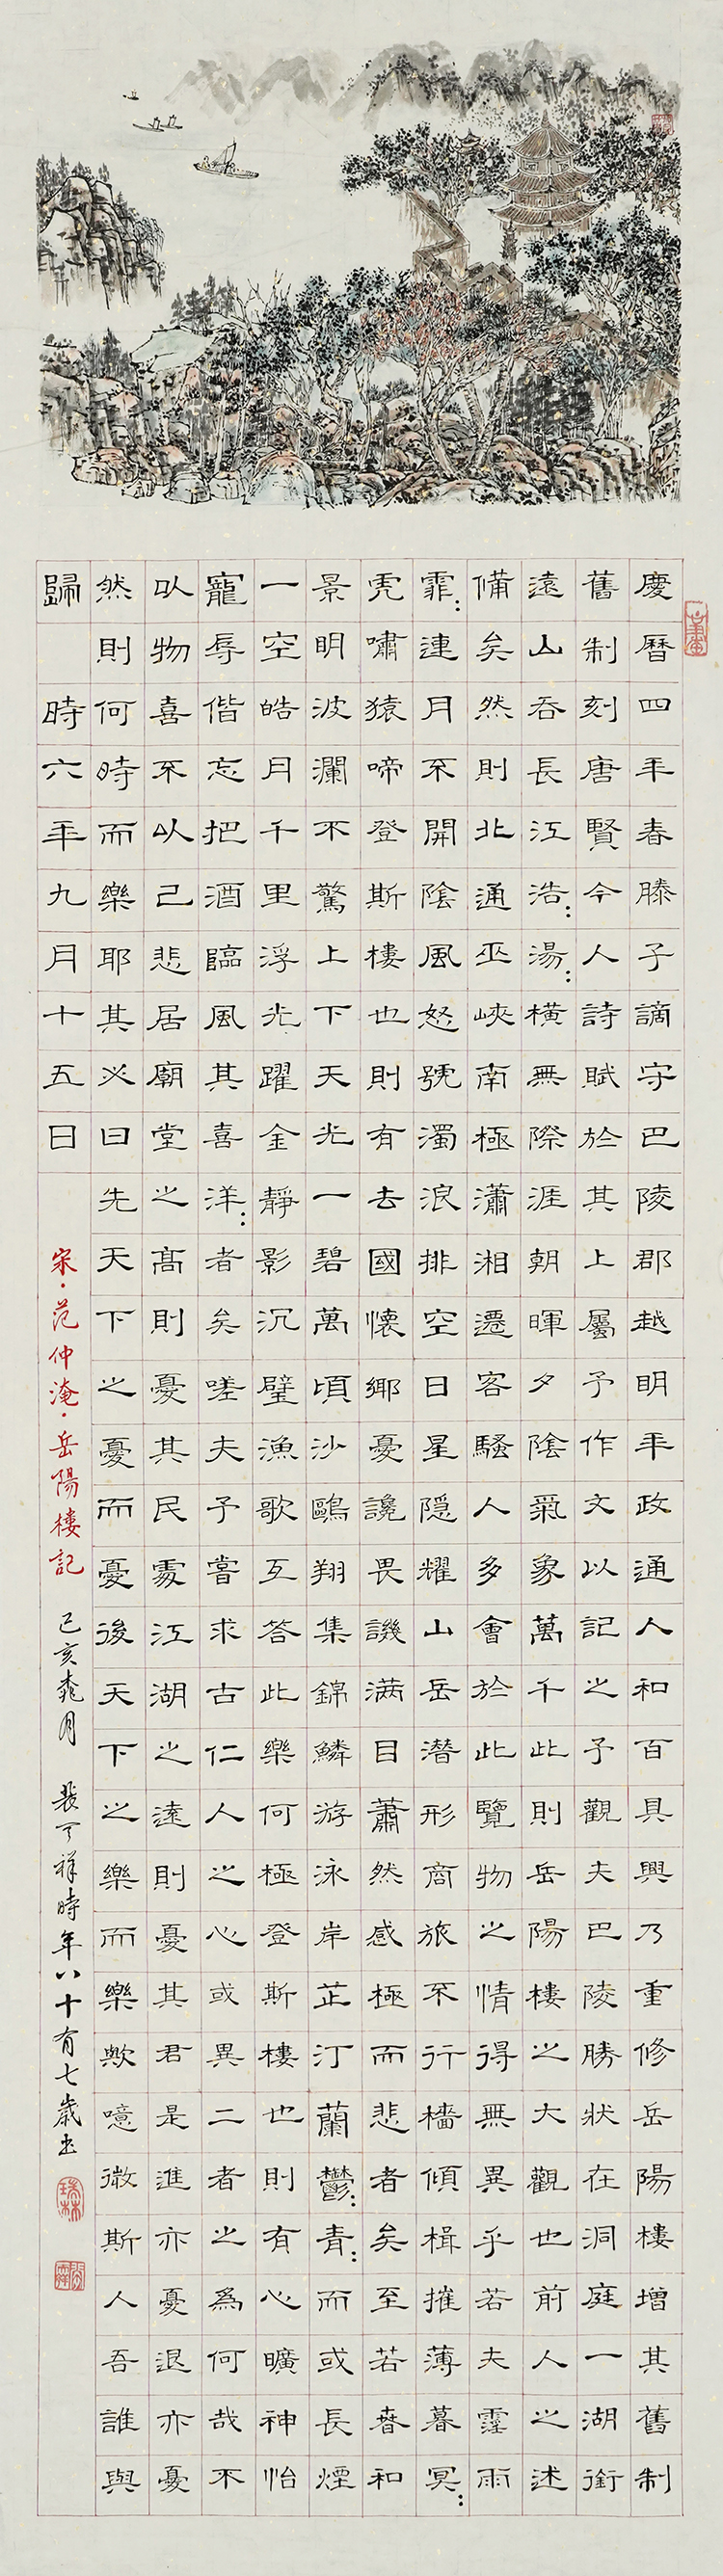 慶曆四年春滕子謫守巴陵郡越明年政通人和百具興乃重修岳陽樓增其舊制
舊制刻唐賢今人詩賦於其上屬予作文以記之予觀夫巴陵勝狀在洞庭一湖銜
遠山吞長江浩:湯:橫無際涯朝暉夕陰氣象萬千此則岳陽樓之大觀也前人之述
備矣然則北通巫峽南極瀟湘遷客騷人多會於此覽物之情得無異乎若夫霪雨
霏:連月不開陰風怒號濁浪排空日星隱耀山岳潛形商旅不行檣傾楫摧薄暮冥:
虎嘯猿啼登斯樓也則有去國懷鄉憂讒畏譏滿目蕭然感極而悲者矣至若春和
景明波瀾不驚上下天光一碧萬頃沙鷗翔集錦鱗游泳岸芷汀蘭鬱:青:而或長煙
一空皓月千里浮光躍金靜影沉璧漁歌互答此樂何極登斯樓也則有心曠神怡
寵辱偕忘把酒臨風其喜洋:者矣嗟夫予嘗求古仁人之心或異二者之為何哉不
以物喜不以己悲居廟堂之高則憂其民處江湖之遠則憂其君是進亦憂退亦憂
然則何時而樂耶其必曰先天下之憂而憂後天下之樂而樂歟噫微斯人吾誰與
歸 時六年九月十五日 宋·范仲淹·岳陽樓記 己亥桃月 祥時年八十有七歲書